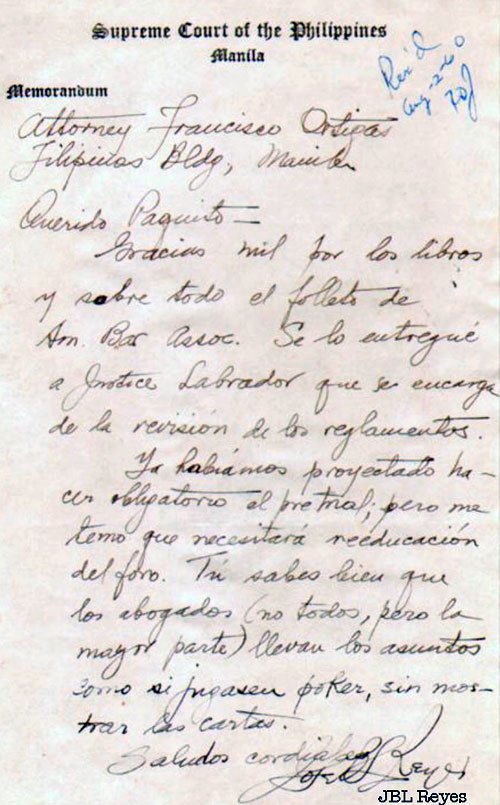 Supreme Court of the Philippines
Manila
Rec'd
Aug-2-60
Memorandum
Attorney Francisco Ortigas
Filipinas Bldg, Manila
Querido Paquito =
Gracias mil por los libros
y sobre todo el folleto de
Am. Bar Assoc. Se lo entregué
a Justice Labrador que se encarga
de la revisión de los reglamentos.
Ya habíamos proyectado ha-
cer obligatorio el pretrial; pero me
temo que necesitará reeducación
del foro. Tú sabes bien que
los abogados (no todos, pero la
mayor parte) llevan los asuntos
como si jugasen poker, sin mos-
trar las cartas.
Saludos cordiales
Reyes
JBL Reyes